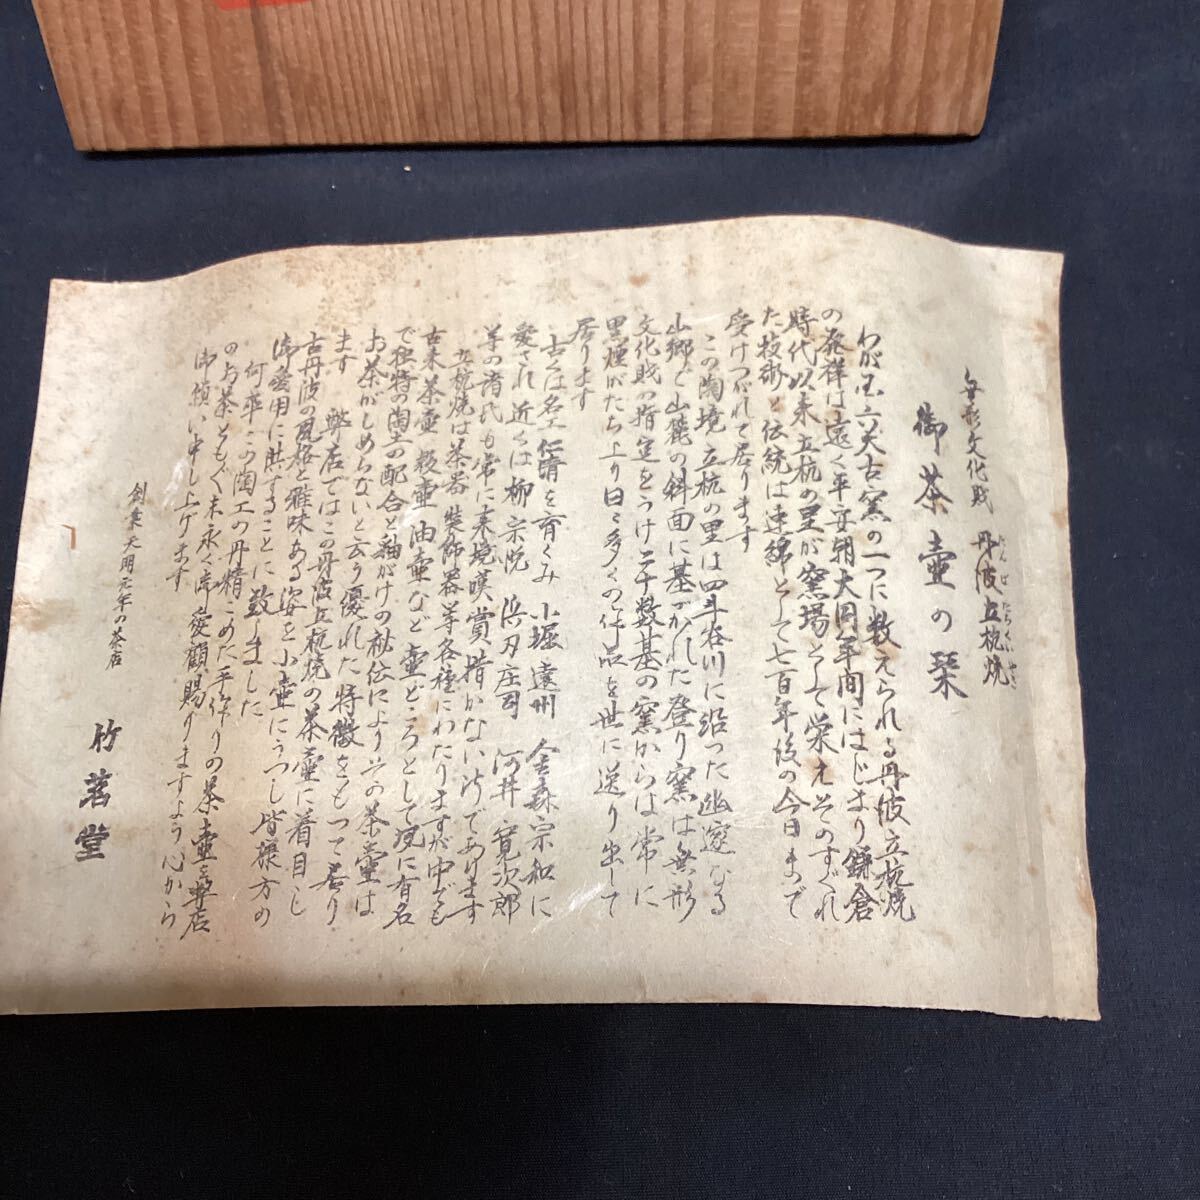 無形文化財 丹波立杭焼
たんば たちくい やき
御茶壷の栞
わが国六大古窯の一つに数えられる丹波立杭焼
の発祥は遠く平安朝大同年間にはじまり鎌倉
時代以来立杭の里が窯場として栄えそのすぐれ
た技術と伝統は連綿として七百年後の今日まで
受けつがれて居ります
この陶境立杭の里は四斗谷川に沿った幽邃なる
山郷で山麓の斜面に基がれた登り窯は無形
文化財の指定をうけ二十数基の窯からは常に
黒煙がたち上り日々多くの作品を世に送り出して
居ります
古くは名工仁清を育くみ 小堀遠州 金森宗和に
愛され近くは柳宗悦 浜田庄司 河井寛次郎
等の諸氏も常に来境嘆賞措かない所であります
立杭焼は茶器 装飾器等各種にわたりますが中でも
古来茶壷 穀壷 油壷など壷どころとして現に有名
で独特の陶土の配合と釉がけの秘伝によりその茶壷は
お茶がしめらないと云う優れた特徴をもって居り
ます 弊店ではこの丹波立杭焼の茶壷に着目し
古丹波の風格と雅味ある姿を小壷にうつし皆様方の
御愛用に供することに致しました
何卒この陶工の丹精こめた手作りの茶壷を弊店
のお茶ともども末永く御愛顧賜りますよう心から
御願い申し上げます
創業天明元年の茶店
竹茗堂